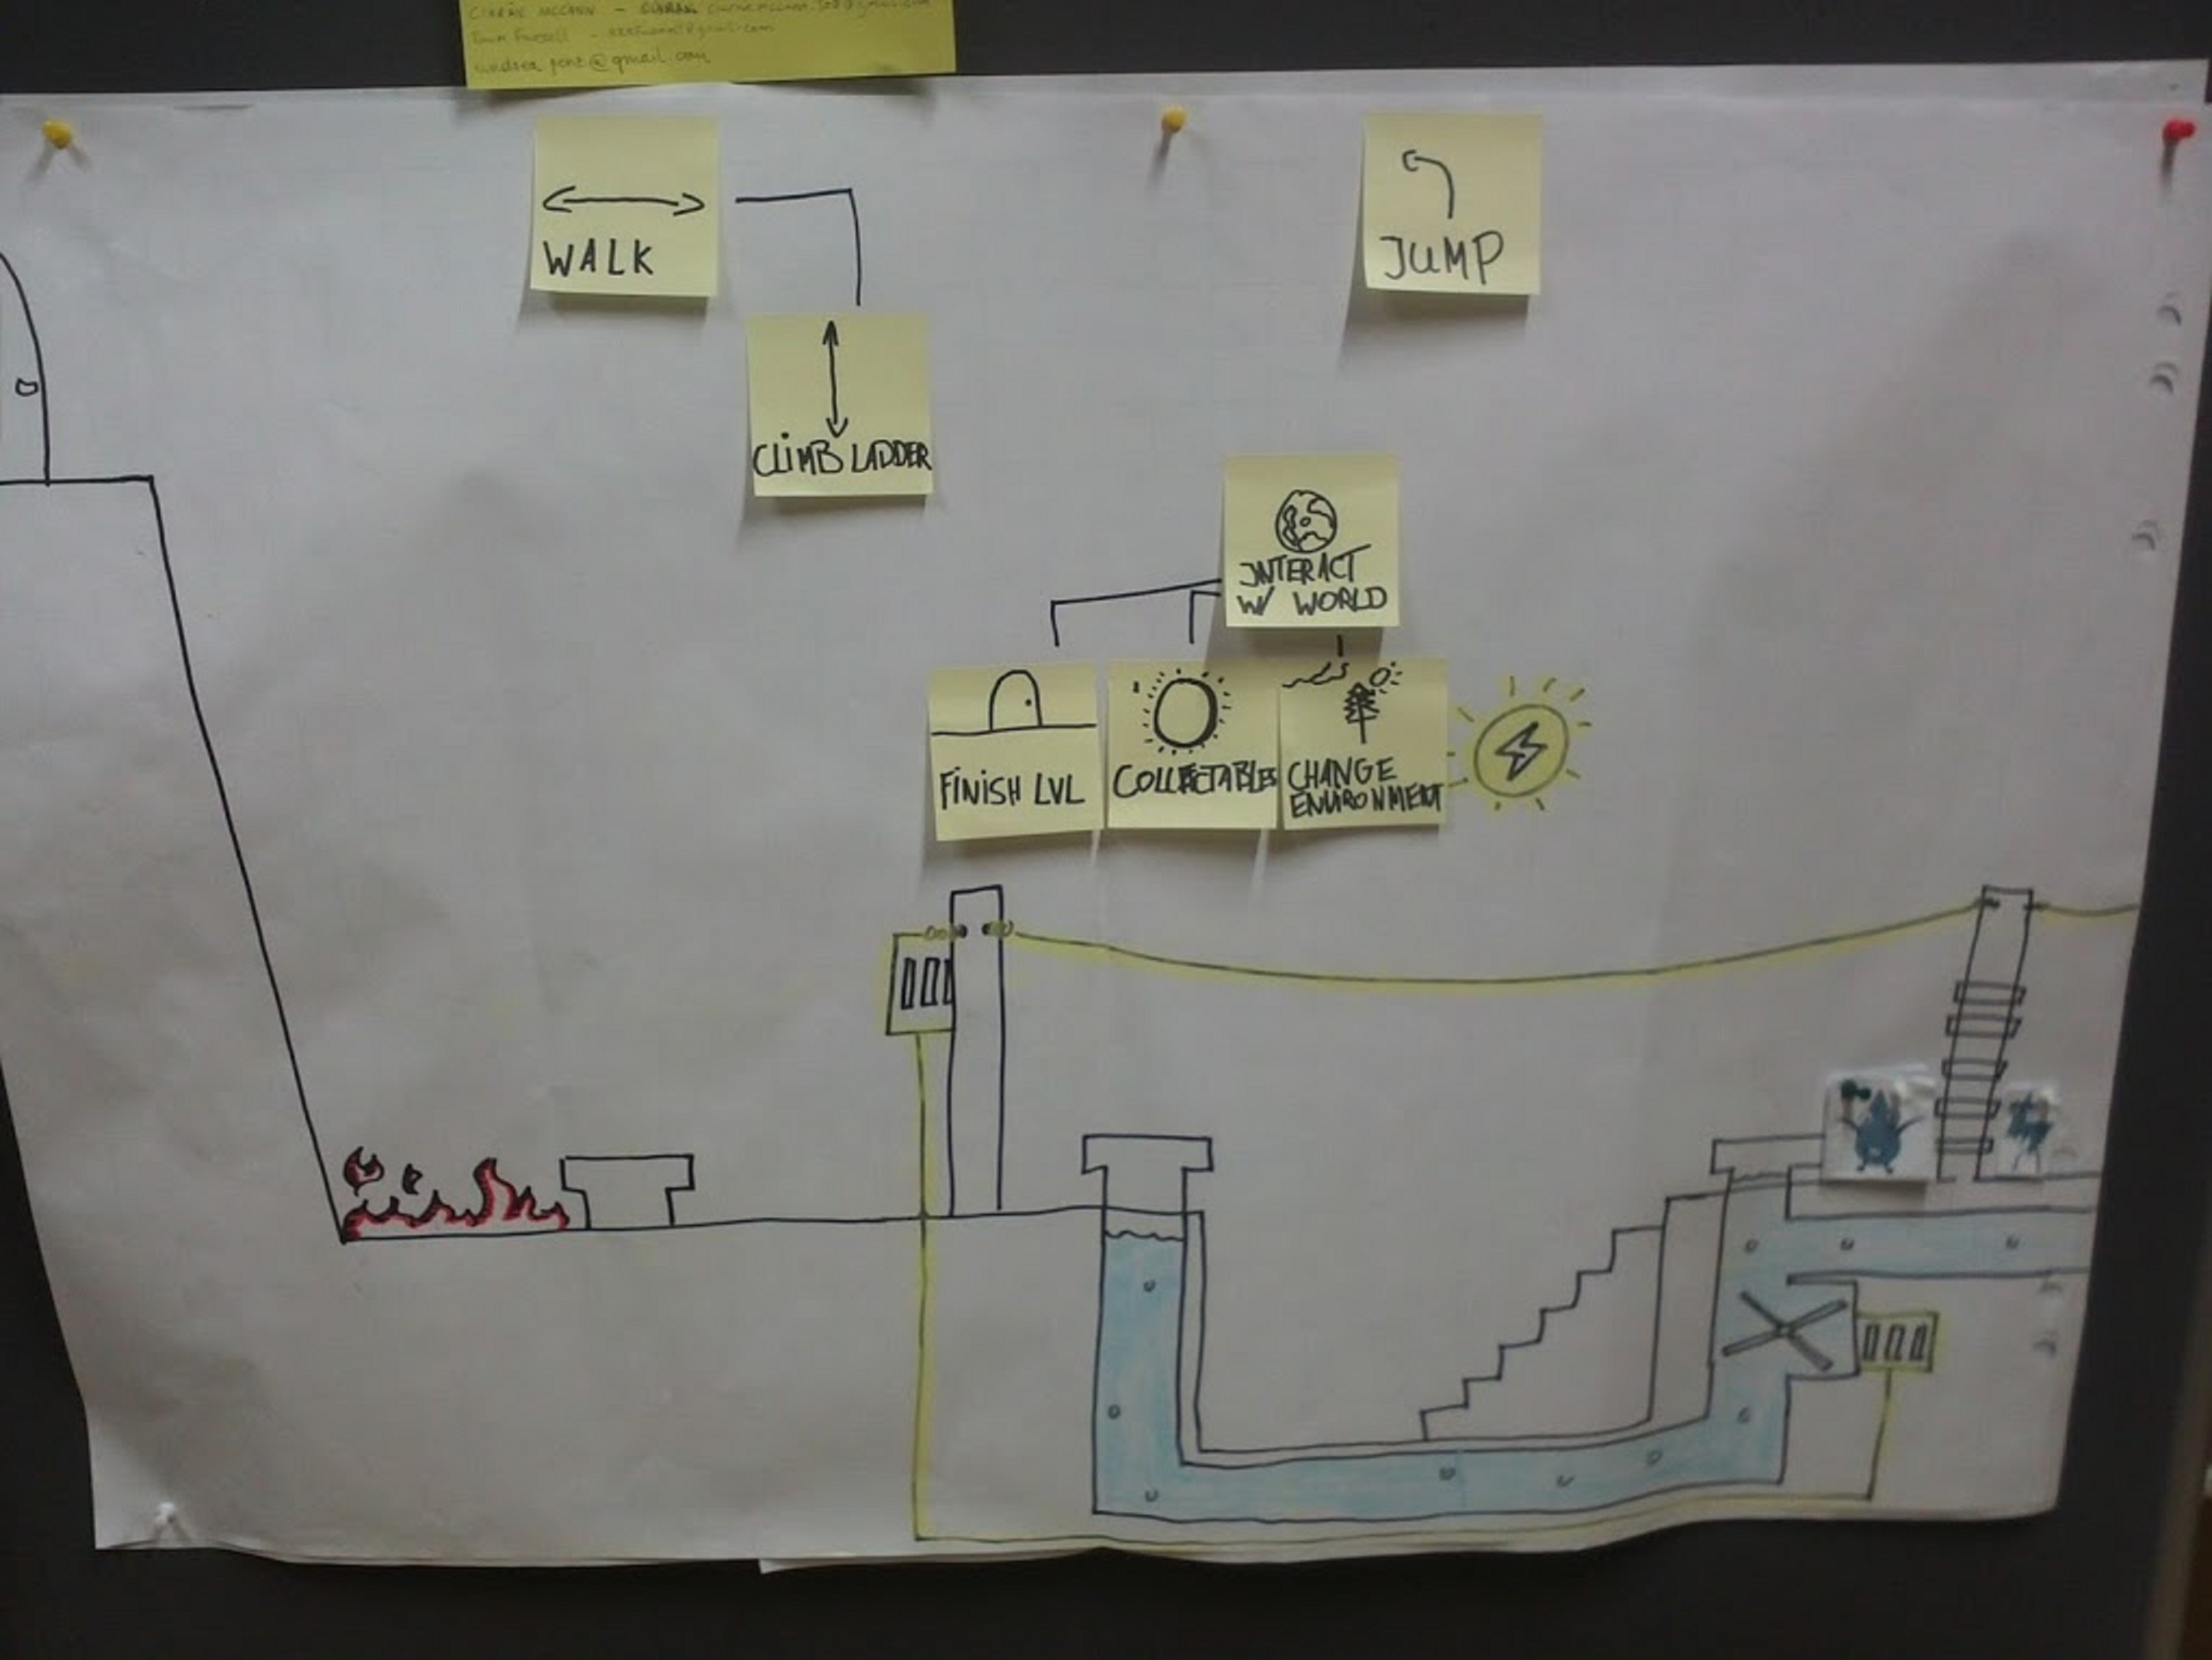 CIARÁN MCCANN -
@gmail.com
WALK
JUMP
CLIMB LADDER
INTERACT
W/ WORLD
FINISH LVL
COLLECTABLES
CHANGE
ENVIRONMENT